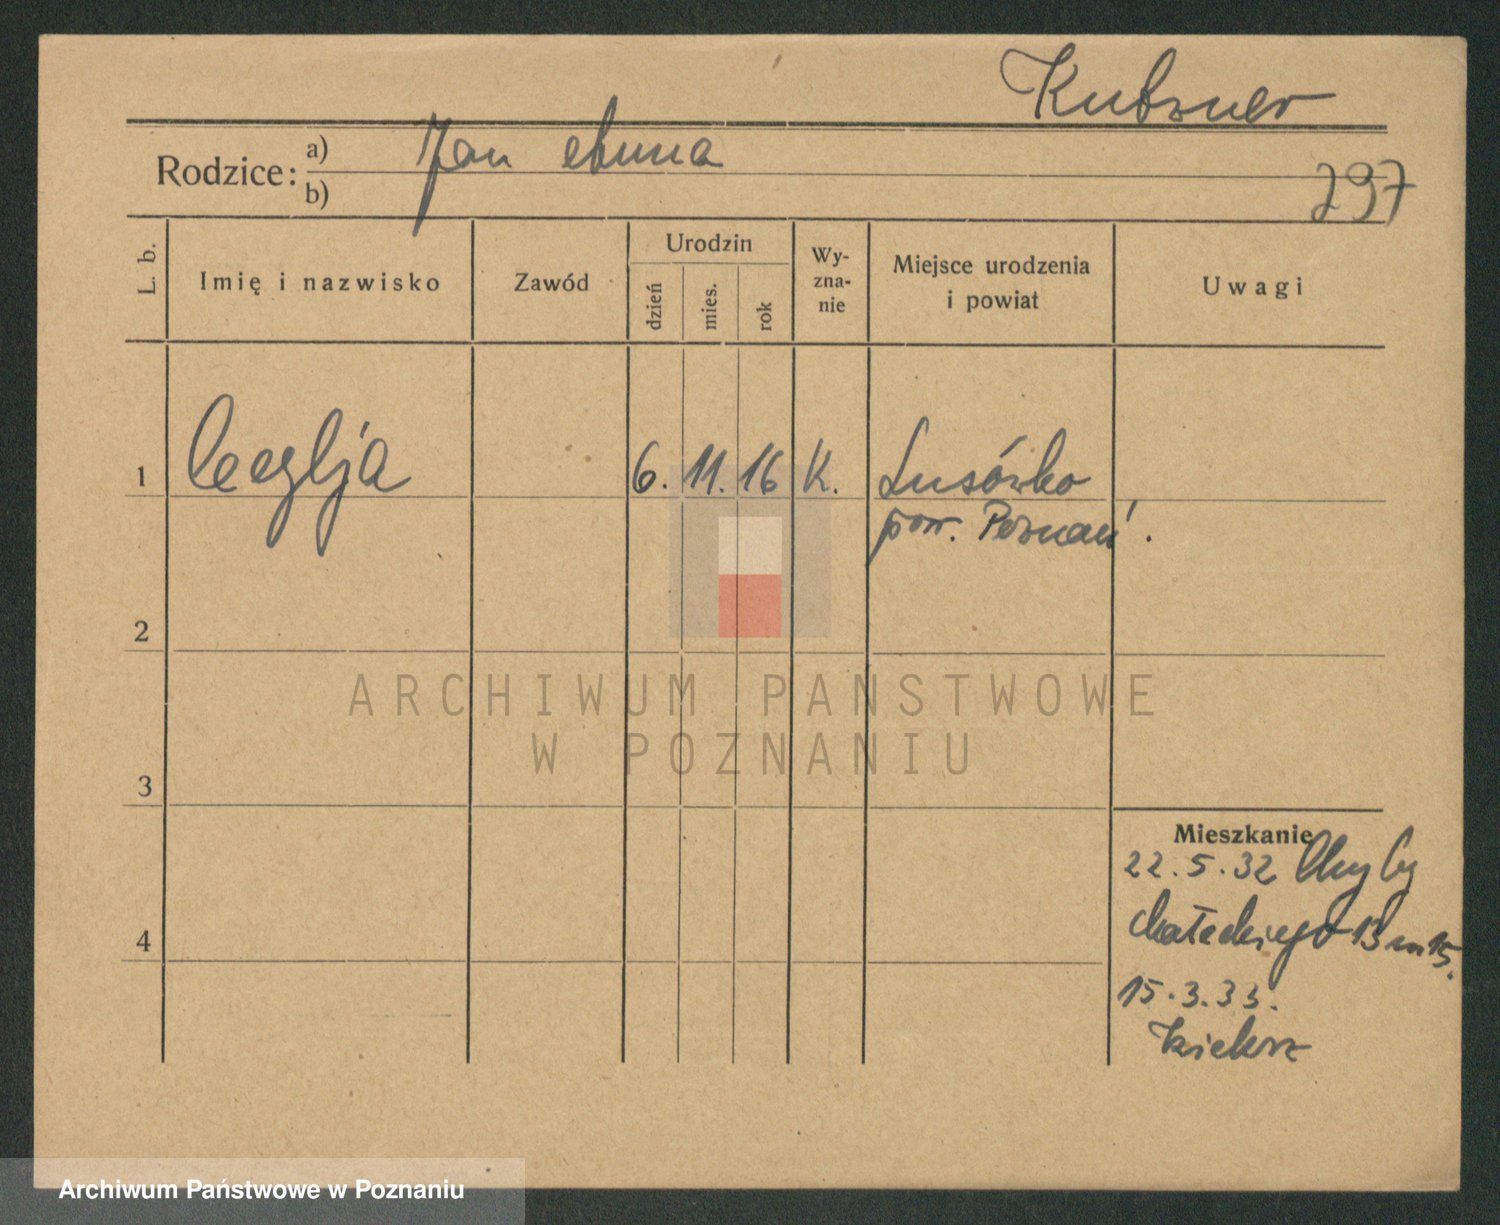 Kubzner
Rodzice: a) Jan Anna
b)
297
L. b.
Imię i nazwisko
Zawód
Urodzin
dzień
mies.
rok
Wy-
zna-
nie
Miejsce urodzenia
i powiat
Uwagi
1 Cecylja 6. 11. 16 K. Lusówko
pow. Poznań.
2
3
4
Mieszkanie
22.5.32
Małeckiego 13 m 15.
15.3.33.
Kiekrz
ARCHIWUM PAŃSTWOWE
W POZNANIU
Archiwum Państwowe w Poznaniu